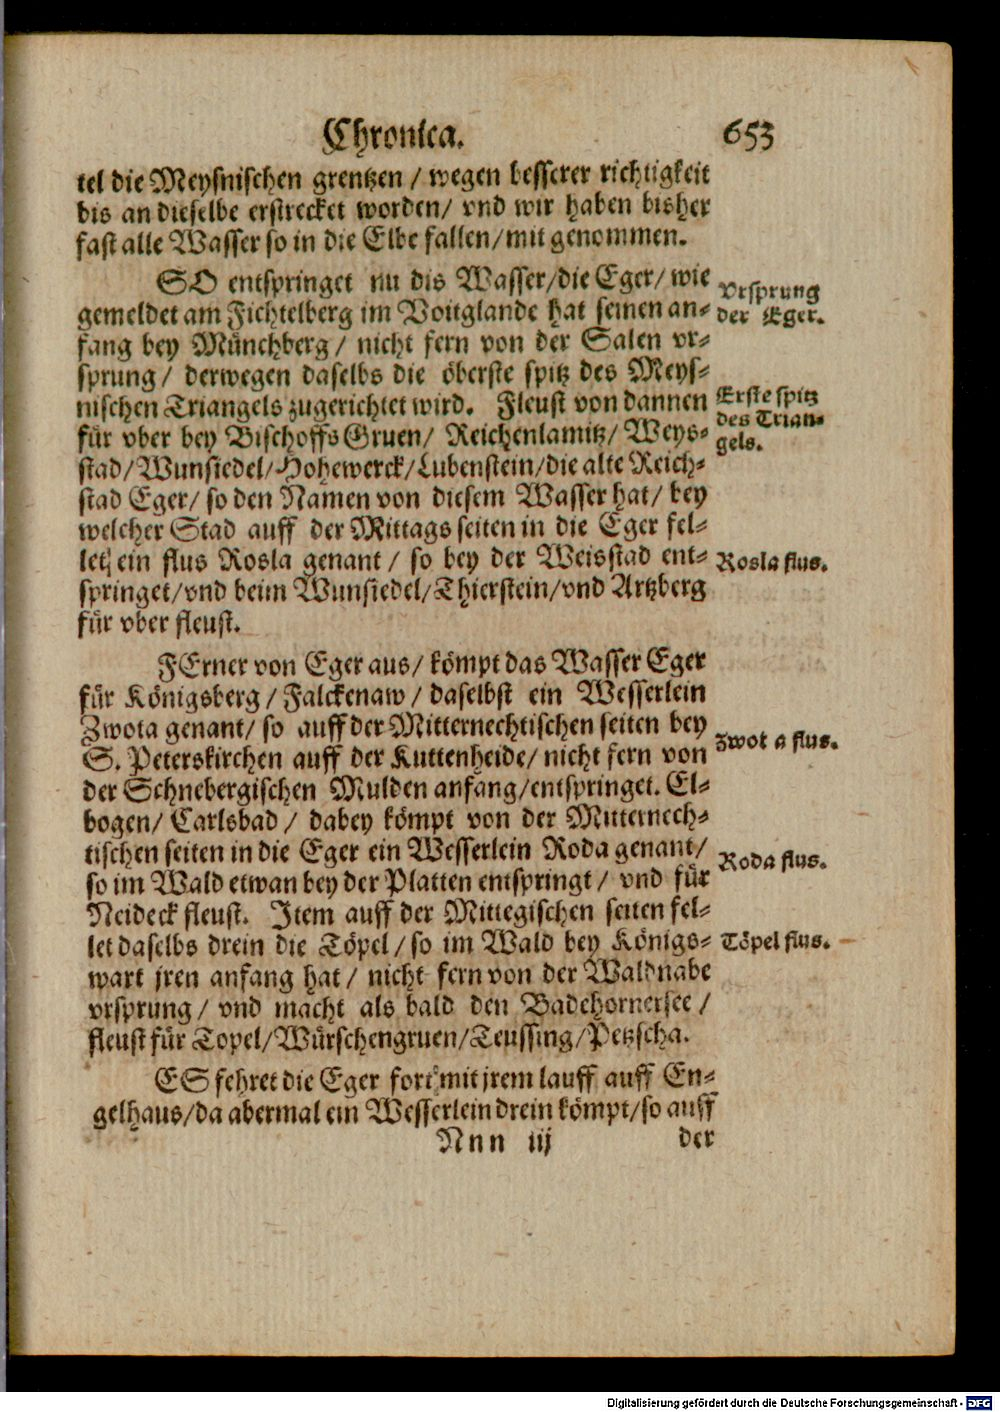 Chronica. 653
tel die Meysnischen grentzen / wegen besserer richtigkeit
bis an dieselbe erstrecket worden / vnd wir haben bisher
fast alle Wasser so in die Elbe fallen / mit genommen.
SO entspringet nu dis Wasser / die Eger / wie
gemeldet am Fichtelberg im Voitglande hat seinen an-
fang bey Münchberg / nicht fern von der Salen vr-
sprung / derwegen daselbs die öberste spitz des Meys-
nischen Triangels zugerichtet wird. Fleust von dannen
für vber bey Bischoffs Gruen / Reichenlamitz / Weys-
stad / Wunsiedel / Hohewerck / Lubenstein / die alte Reich-
stad Eger / so den Namen von diesem Wasser hat / bey
welcher Stad auff der Mittags seiten in die Eger fel-
let ein flus Rosla genant / so bey der Weisstad ent-
springet / vnd beim Wunsiedel / Thierstein / vnd Artzberg
für vber fleust.
Vrsprung
der Eger.
Erste spitz
des Trian-
gels.
Rosla flus.
FErner von Eger aus / kömpt das Wasser Eger
für Königsberg / Falckenaw / daselbst ein Wesserlein
Zwota genant / so auff der Mitternechtischen seiten bey
S. Peterskirchen auff der Kuttenheide / nicht fern von
der Schnebergischen Mulden anfang / entspringet. El-
bogen / Carlsbad / dabey kömpt von der Mitternech-
tischen seiten in die Eger ein Wesserlein Roda genant /
so im Wald etwan bey der Platten entspringt / vnd für
Neideck fleust. Item auff der Mittegischen seiten fel-
let daselbs drein die Töpel / so im Wald bey Königs-
wart jren anfang hat / nicht fern von der Waldnabe
vrsprung / vnd macht als bald den Badehornersee /
fleust für Topel / Würschengruen / Teussing / Petzscha.
Zwota flus.
Roda flus.
Töpel flus.
ES fehret die Eger fort mit jrem lauff auff En-
gelhaus / da abermal ein Wesserlein drein kömpt / so auff
Nnn iij der
Digitalisierung gefördert durch die Deutsche Forschungsgemeinschaft - DFG